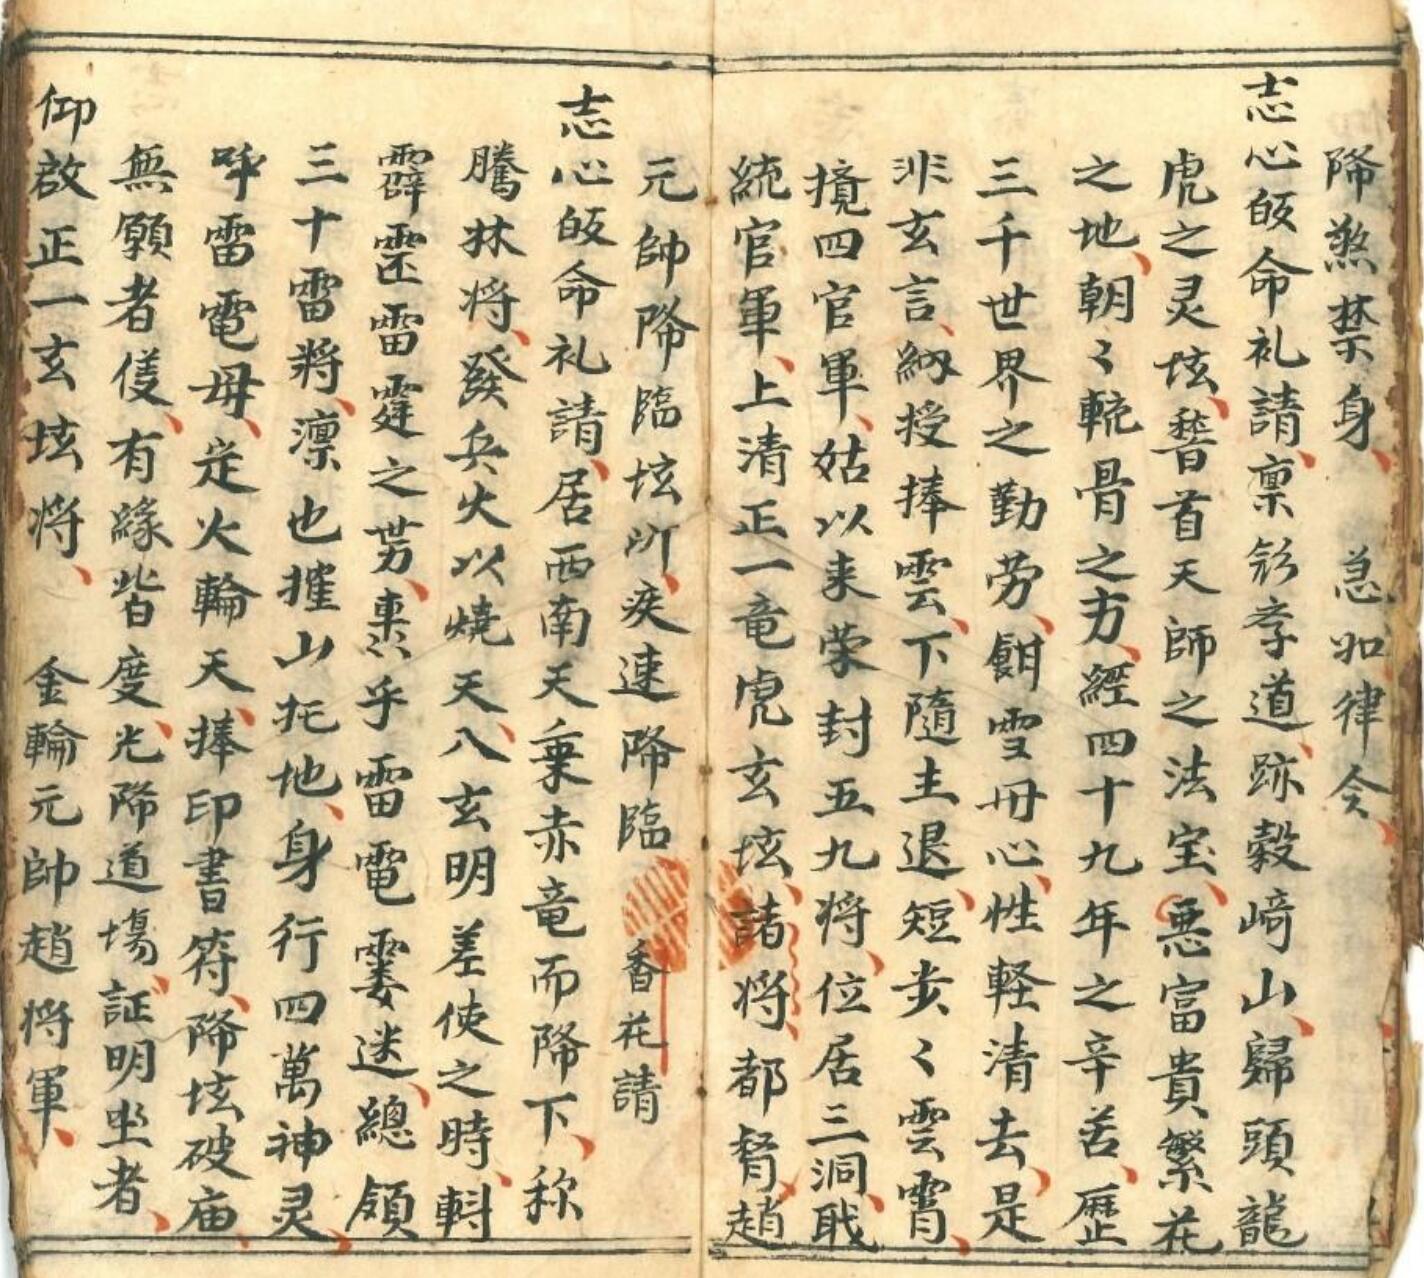 降煞禁身、　急如律令、
志心皈命礼請、禀㱏孝道、跡穀﨑山、歸頭龍
虎之灵坛、誓首天師之法宝、悪富貴繁花
之地、朝〻䡖骨之方、經四十九年之辛苦、歴
三千世界之勤劳、飡雪毋心、性軽清去、是
非玄言、納授捧雲、下隨主退、短步〻雲霄、
搅四官軍、姑以来荣封五九将、位居三洞戝
統官軍、上清正一竜虎玄坛、諸将、都督趙
元帥降臨坛所、疾速降臨　香花請
志心皈命礼請、居西南天乗赤竜而降下、称
騰林将、發兵火以燒天、八玄明差使之時、斟
霹靂雷霆之势、禀乎雷電霎迷、總領
三十雷將、凛也摧山拕地、身行四萬神灵、
呼雷電母、走火輪天、捧印書符、降坛破庙、
無願者護、有緣皆度、光降道場、証明坐者、
仰啟正一玄坛将、　金輪元帥趙将軍、